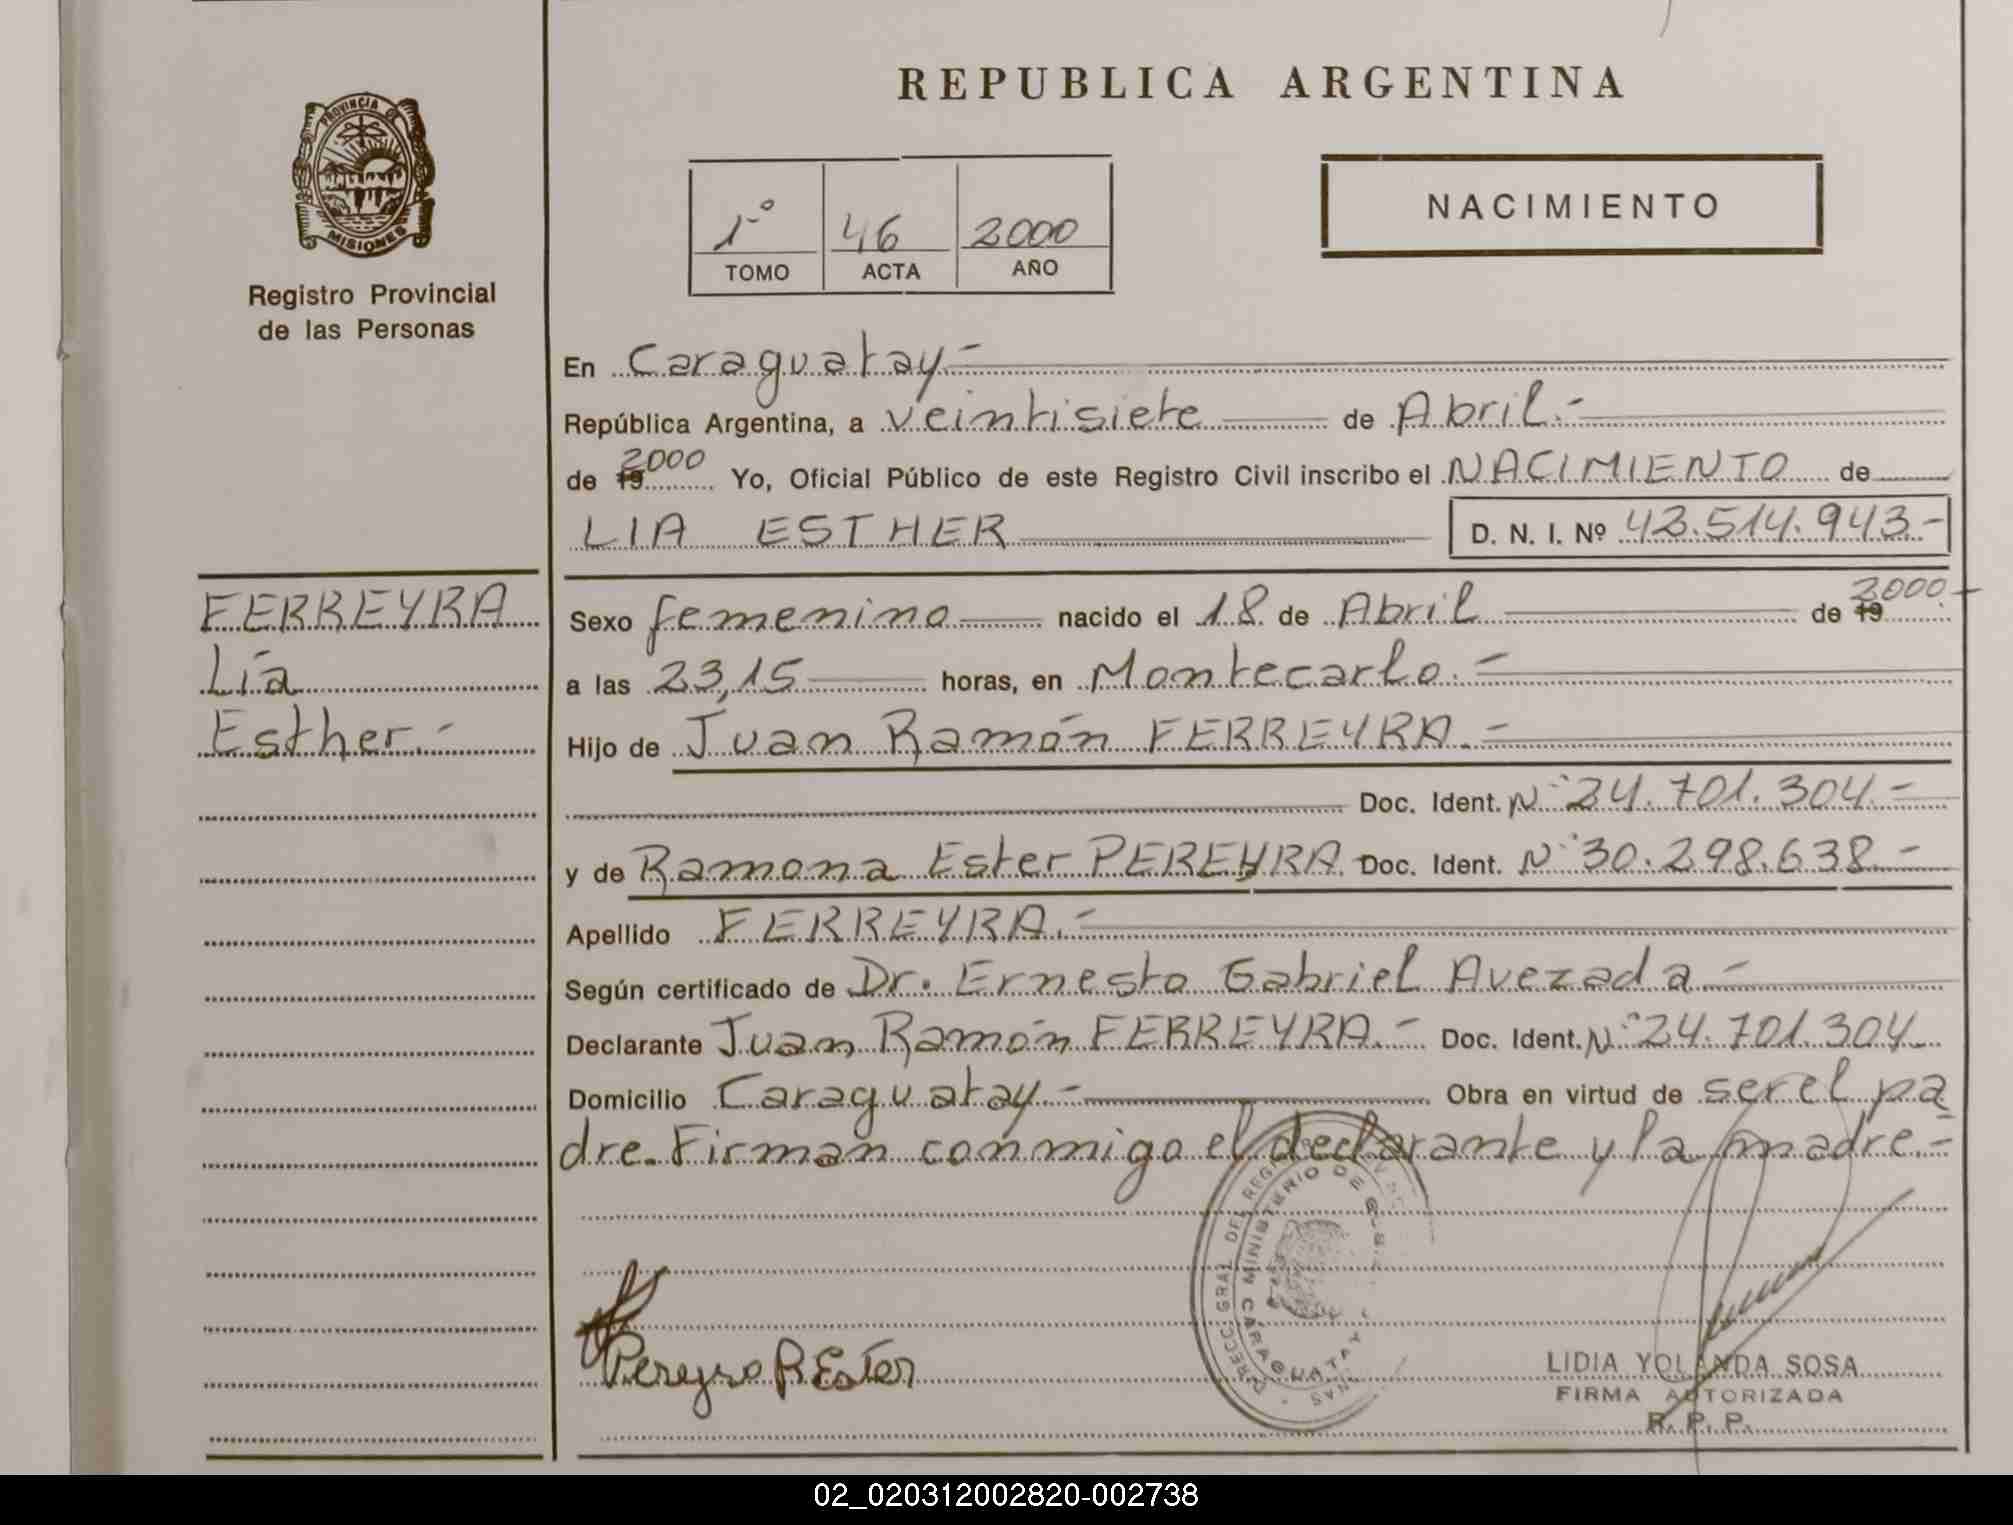 REPUBLICA ARGENTINA
PROVINCIA DE MISIONES
Registro Provincial
de las Personas
1º 46 2000
TOMO ACTA AÑO
NACIMIENTO
En Caraguatay.-
República Argentina, a veintisiete de Abril.-
de 19 2000 Yo, Oficial Público de este Registro Civil inscribo el NACIMIENTO de
LIA ESTHER D. N. I. Nº 42.514.943.-
FERREYRA
Lía
Esther.-
Sexo femenino nacido el 18 de Abril de 19 2000.-
a las 23,15 horas, en Montecarlo.-
Hijo de Juan Ramón FERREYRA.-
Doc. Ident. Nº 24.701.304.-
y de Ramona Ester PEREYRA Doc. Ident. Nº 30.298.638.-
Apellido FERREYRA.-
Según certificado de Dr. Ernesto Gabriel Avezada.-
Declarante Juan Ramón FERREYRA.- Doc. Ident. Nº 24.701.304
Domicilio Caraguatay.- Obra en virtud de ser el pa
dre. Firman conmigo el declarante y la madre.-
DIRECC. GRAL. DEL REG
MINISTERIO DE G.
CARAGUATAY
Pereyra R Ester
LIDIA YOLANDA SOSA
FIRMA AUTORIZADA
R. P. P.
02_020312002820-002738